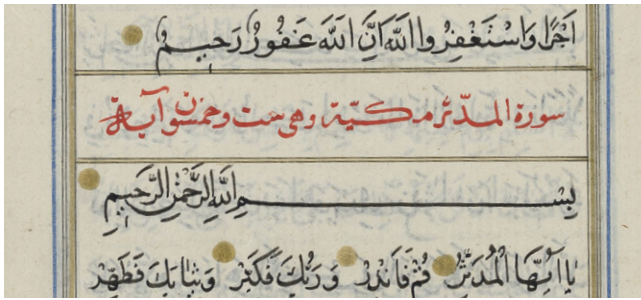 اَجْرًا وَاسْتَغْفِرُوا اللّٰهَ اِنَّ اللّٰهَ غَفُورٌ رَحِيمٌ
سورة المدّثر مكيّة وهى ست وخمسون آية
بِسْمِ اللّٰهِ الرَّحْمٰنِ الرَّحِيمِ
يَا اَيُّهَا الْمُدَّثِّرُ قُمْ فَاَنْذِرْ وَرَبَّكَ فَكَبِّرْ وَثِيَابَكَ فَطَهِّرْ